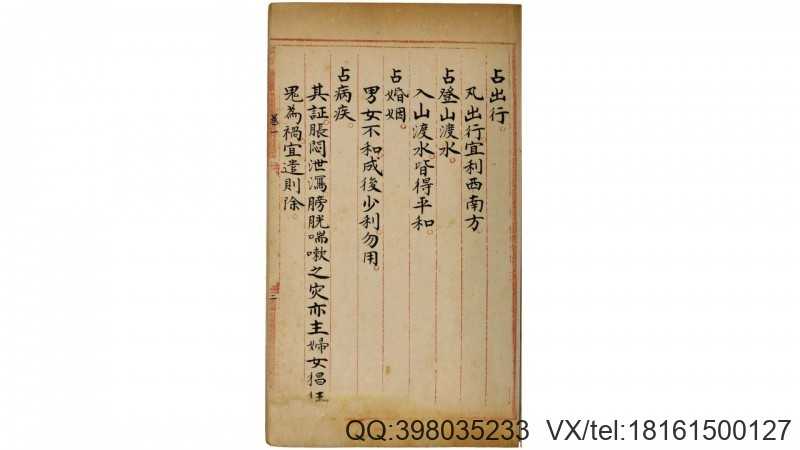 占出行。
凡出行宜利西南方。
占登山渡水。
入山渡水皆得平和。
占婚姻。
男女不和成後少利勿用。
占病疾。
其証脹悶泄瀉膀胱喘嗽之灾亦主婦女猖狂
鬼為禍宜遣則除。
卷一
二
QQ:398035233 VX/tel:18161500127